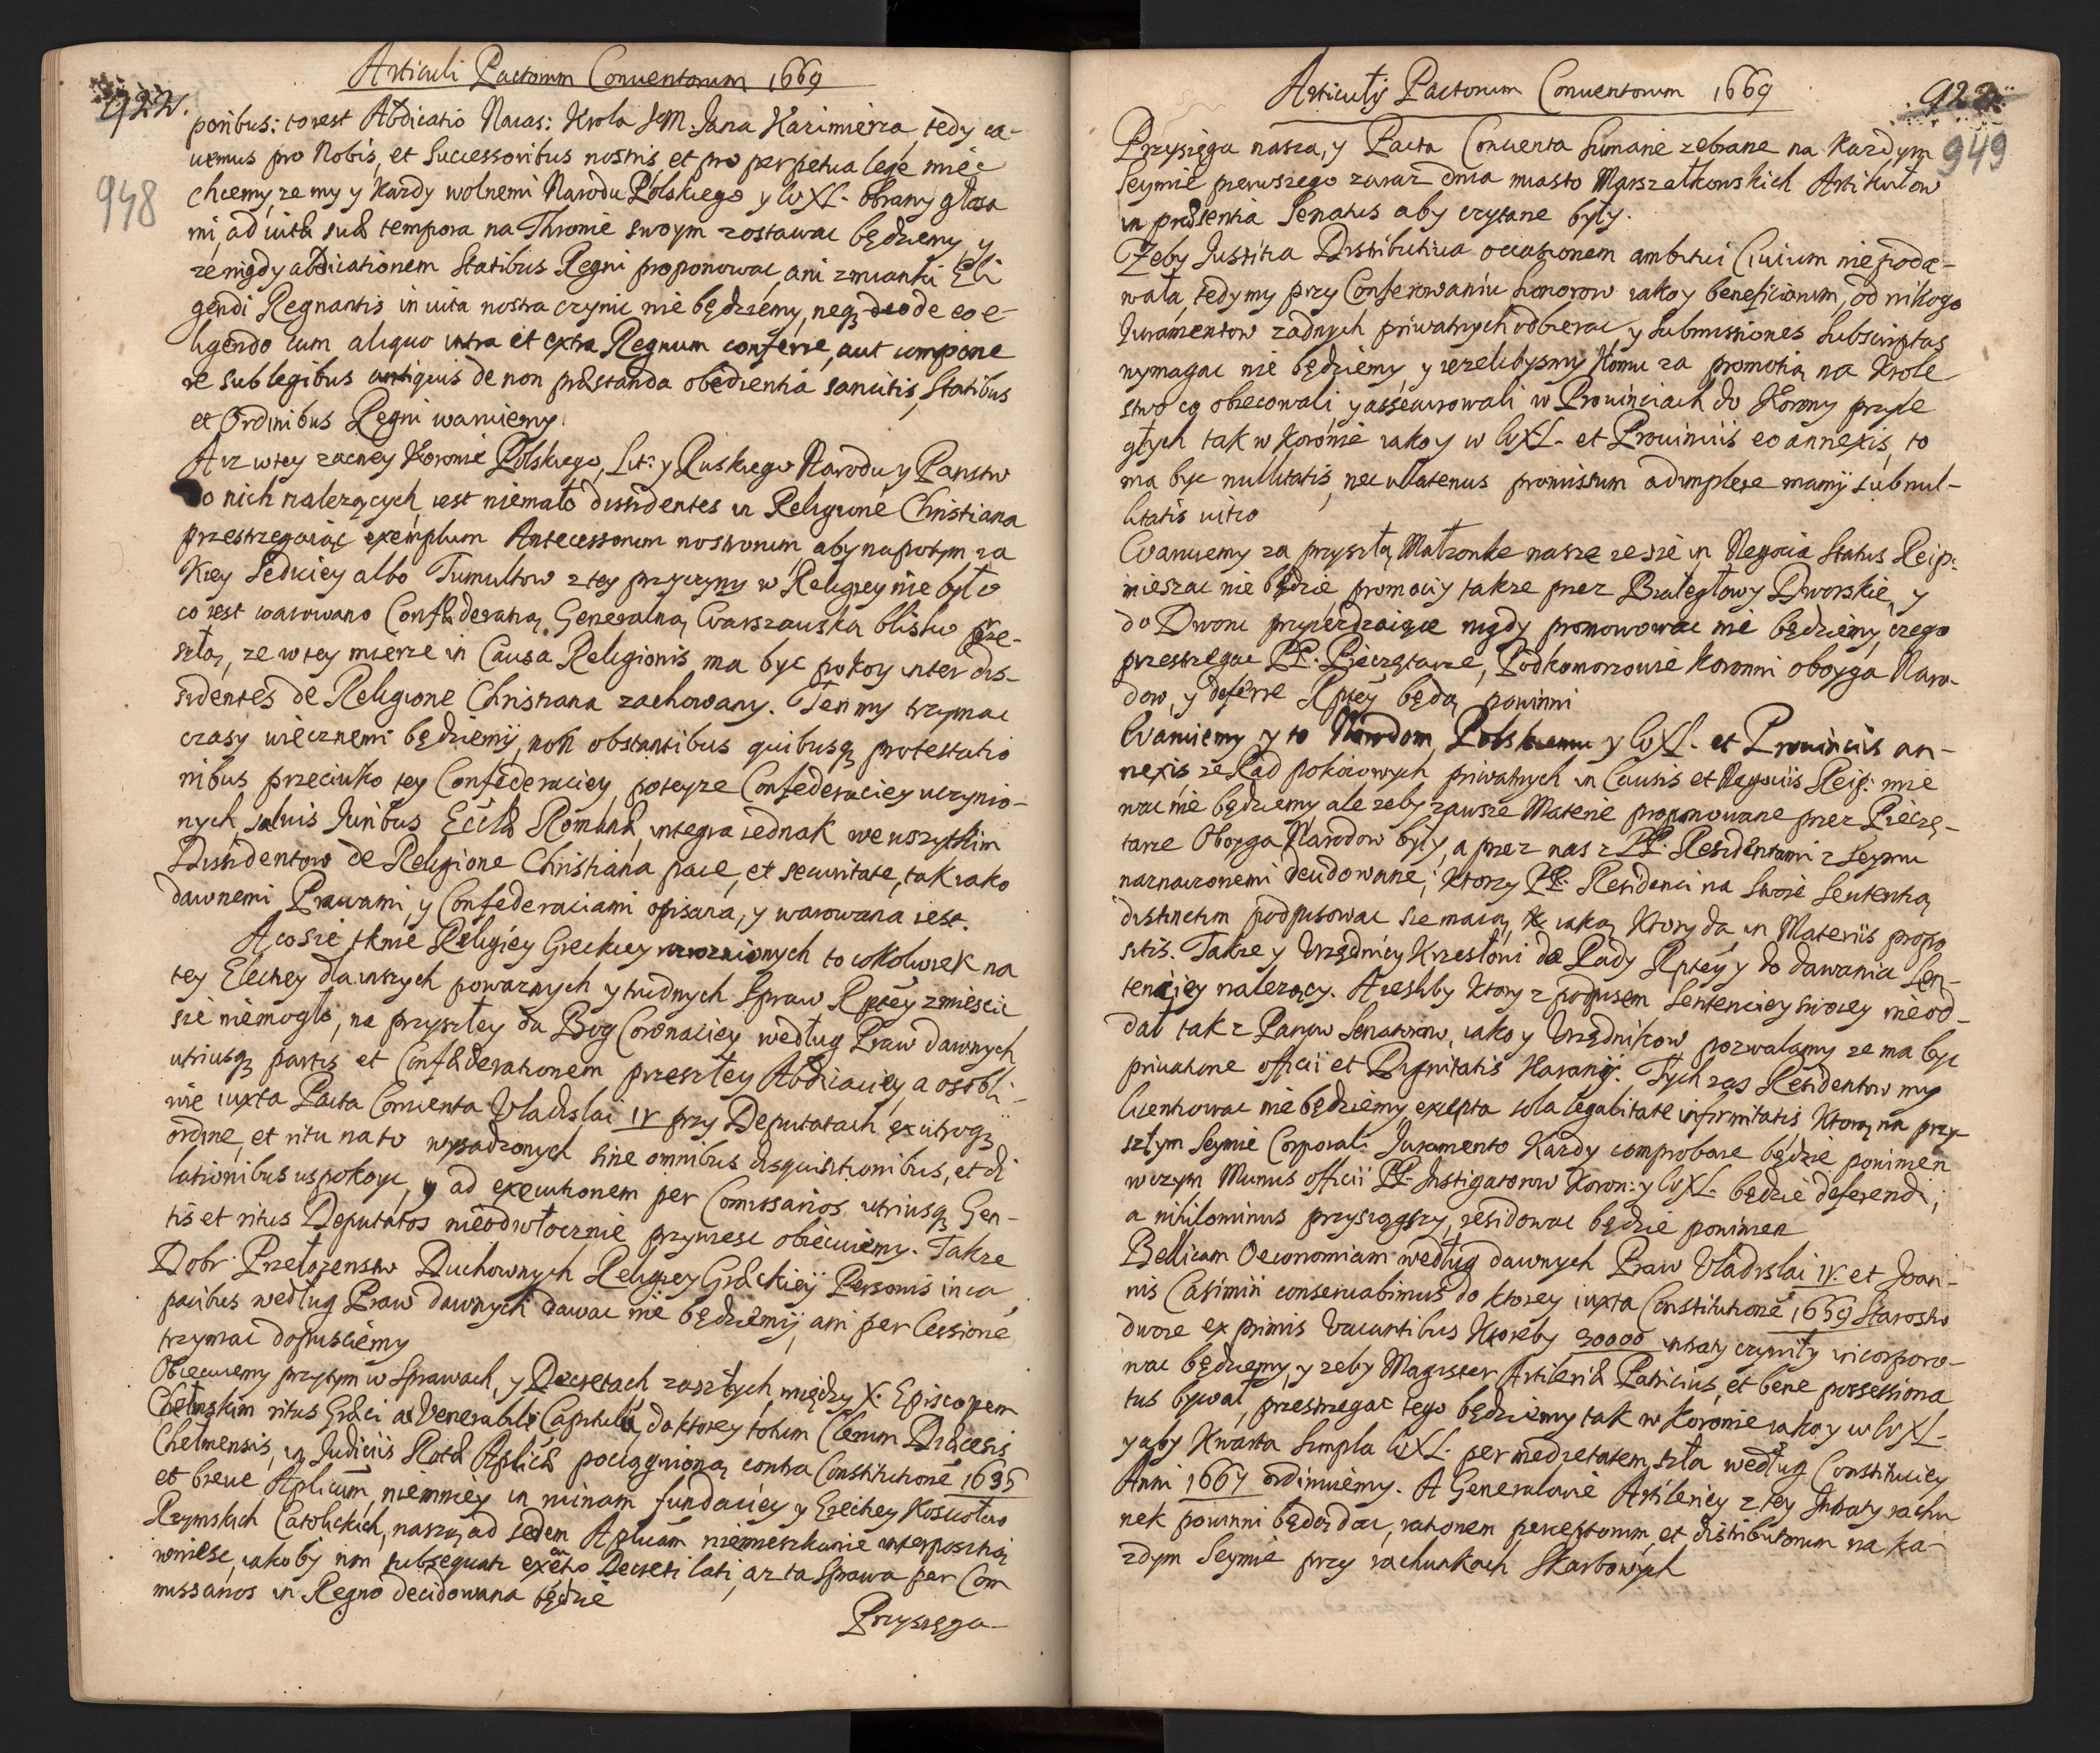 Articuli Pactorum Conventorum 1669
922.
948
poribus: to iest Abdicatio Naias: Krola JeM. Jana Kazimierza, tedy ca-
uemus pro Nobis, et Successoribus nostris, et pro perpetua lege miec
chcemy, ze my y kazdy wolnemi Narodu Polskiego y WXL. obrany głosa
mi, ad vitæ suæ tempora na Thronie swoym zostawac będziemy, y
ze nigdy abdicationem Statibus Regni proponowac, ani zmianki Eli
gendi Regnantis in vita nostra czynic nie będziemy, neqz de eo e-
ligendo cum aliquo intra et extra Regnum conferre, aut compone
re sub legibus antiquis de non præstanda obedientia sancitis, Statibus
et Ordinibus Regni waruiemy.
A iz w tey zacney Koronie Polskiego, Lit: y Ruskiego Narodu y Panstw
do nich nalezących, iest niemało dissidentes in Religione Christiana
przestrzegaiąc exemplum Antecessorum nostrorum aby napotym ia
kiey Sediciey albo Tumultow z tey przyczyny w Religiey nie było
co iest warowano Confæderatią Generalną Warszawską blisko prze-
szłą, ze w tey mierze in Causa Religionis ma byc pokoy inter dis-
sidentes de Religione Christiana zachowany. Ten my trzymac
czasy wiecznemi będziemy, non obstantibus quibusqz protestatio
nibus przeciwko tey Confederaciey, poteyze Confederaciey uczynio-
nych, salvis Juribus Eccłæ Romanæ, integra iednak we wszytkim
Dissidentow de Religione Christiana pace, et securitate, tak iako
dawnemi Prawami, y Confederaciami opisana, y warowana iest.
A co sie tknie Religiey Greckiey rozroznionych to cokolwiek na
tey Electiey dla inszych powaznych y trudnych Spraw Rptey zmiescic
sie niemogło, na przyszłey da Bog Coronaciey według Praw dawnych
utriusqz partis et Confæderationem przeszłey Abdicaciey, a osobli-
wie iuxta Pacta Conventa Vladislai IV przy Deputatach ex utroqz
ordine, et ritu na to wysadzonych sine omnibus disquisitionibus, et di
lationibus uspokoyc, y ad executionem per Comissarios utriusqz Gen-
tis et ritus Deputatos nieodwłocznie przywiesc obiecuiemy. Takze
Dobr Przełozenstw Duchownych Religiey Græckiey Personis inca
pacibus według Praw dawnych dawac nie będziemy, ani per Cessione
trzymac dopusciemy
Obiecuiemy przytym w Sprawach, y Decretach zaszłych między X. Episcopem
Chełmskim ritus Græci a Venerabili Capitulu, do ktorey totum Clerum Diæcesis
Chelmensis, in Judiciis Rotæ Aplicæ pociągnioną contra Constitutione 1635
et breve Aplicum, niemniey in ruinam fundaciey y Erectiey Kosciołow
Rzymskich Catolickich, naszą ad sedem Aplicam niemieszkanie interpositią
wniesc, iakoby non subsequatr exetio Decreti lati, az ta Sprawa per Com
missarios in Regno decidowana będzie
Przysięga
Articuły Pactorum Conventorum 1669
923
949
Przysięga nasza, y Pacta Conventa Sumarie zebrane na kazdym
Seymie pierwszego zaraz dnia miasto Marszałkowskich Artikułow
in præsentia Senatus aby czytane były.
Zeby Justitia Distributiva occasionem ambitui Civium nie poda-
wała, tedy my przy Conferowaniu honorow iako y beneficiorum, od nikogo
Juramentow zadnych priwatnych odbierac, y Submissiones Subscriptas
wymagac nie będziemy, y iezelibysmy komu za promotią na Krole
stwo co obiecowali, y assecurowali w Prowinciach do Korony przyle
głych tak w Koronie iako y w WXL. et Provinciis eo annexis, to
ma byc nullitatis, nec ullatenus promissum adimplere mamy sub nul-
litatis vitio
Waruiemy za przyszłą Małzonke nasze ze sie in Negocia Status Reip:
mieszac nie będzie promociy takze przez Białegłowy Dworskie, y
do Dworu przyiezdzaiące nigdy promowowac nie będziemy, czego
przestrzegac PP. Pieczętarze, Podkomorzowie Koronni oboyga Naro-
dow, y deferre Rptey będą powinni
Waruiemy y to Narodom Polskiemu y WXL. et Provinciis an-
nexis, ze Rad pokoiowych priwatnych in Causis et Negociis Reip: mie
wac nie będziemy, ale zeby zawsze Materie proponowane przez Pieczę-
tarze Oboyga Narodow były, a przez nas z PP. Residentami z Seymu
naznaczonemi decidowane; ktorzy PP. Residenci na Swoie Sententią
distinctim podpisowac sie maią, iaką ktory da in Materiis propo
sitis. Takze y Urzędnicy Krzesłowi do Rady Rptey y do dawania Sen-
tenciey nalezący. A iesliby ktory z podpisem Sentenciey swoiey nie od-
dał tak z Panow Senatorow, iako y Urzędnikow pozwalamy ze ma byc
privatione officii et Dignitatis karany. Tych zas Residentow my
licentiowac nie będziemy, excepta sola legalitate infirmitatis ktorą na przy-
szłym Seymie Corporali Juramento kazdy comprobare będzie powinien
w czym Munus officii PP. Instigatorow Koron: y WXL. będzie deferendi;
a nihilominus przysiągszy, residowac będzie powinien
Bellicam Oeconomiam według dawnych Praw Vladislai IV. et Joan-
nis Casimiri conservabimus do ktorey iuxta Constitutione 1659 Starostw
dwoie ex primis vacantibus ktoreby 30000 intraty czyniły incorporo-
wac będziemy, y zeby Magister Artileriæ Patricius, et bene possessiona
tus bywał, przestrzegac tego będziemy tak w Koronie iako y w WXL.
y aby Kwarta Simpla WXL. per medietatem szła według Constituciey
Anni 1667 ordinuiemy. A Generałowie Artileriey z tey Intraty rachu
nek powinni będą dac, rationem perceptorum, et distributorum na ka-
zdym Seymie przy rachunkach Skarbowych